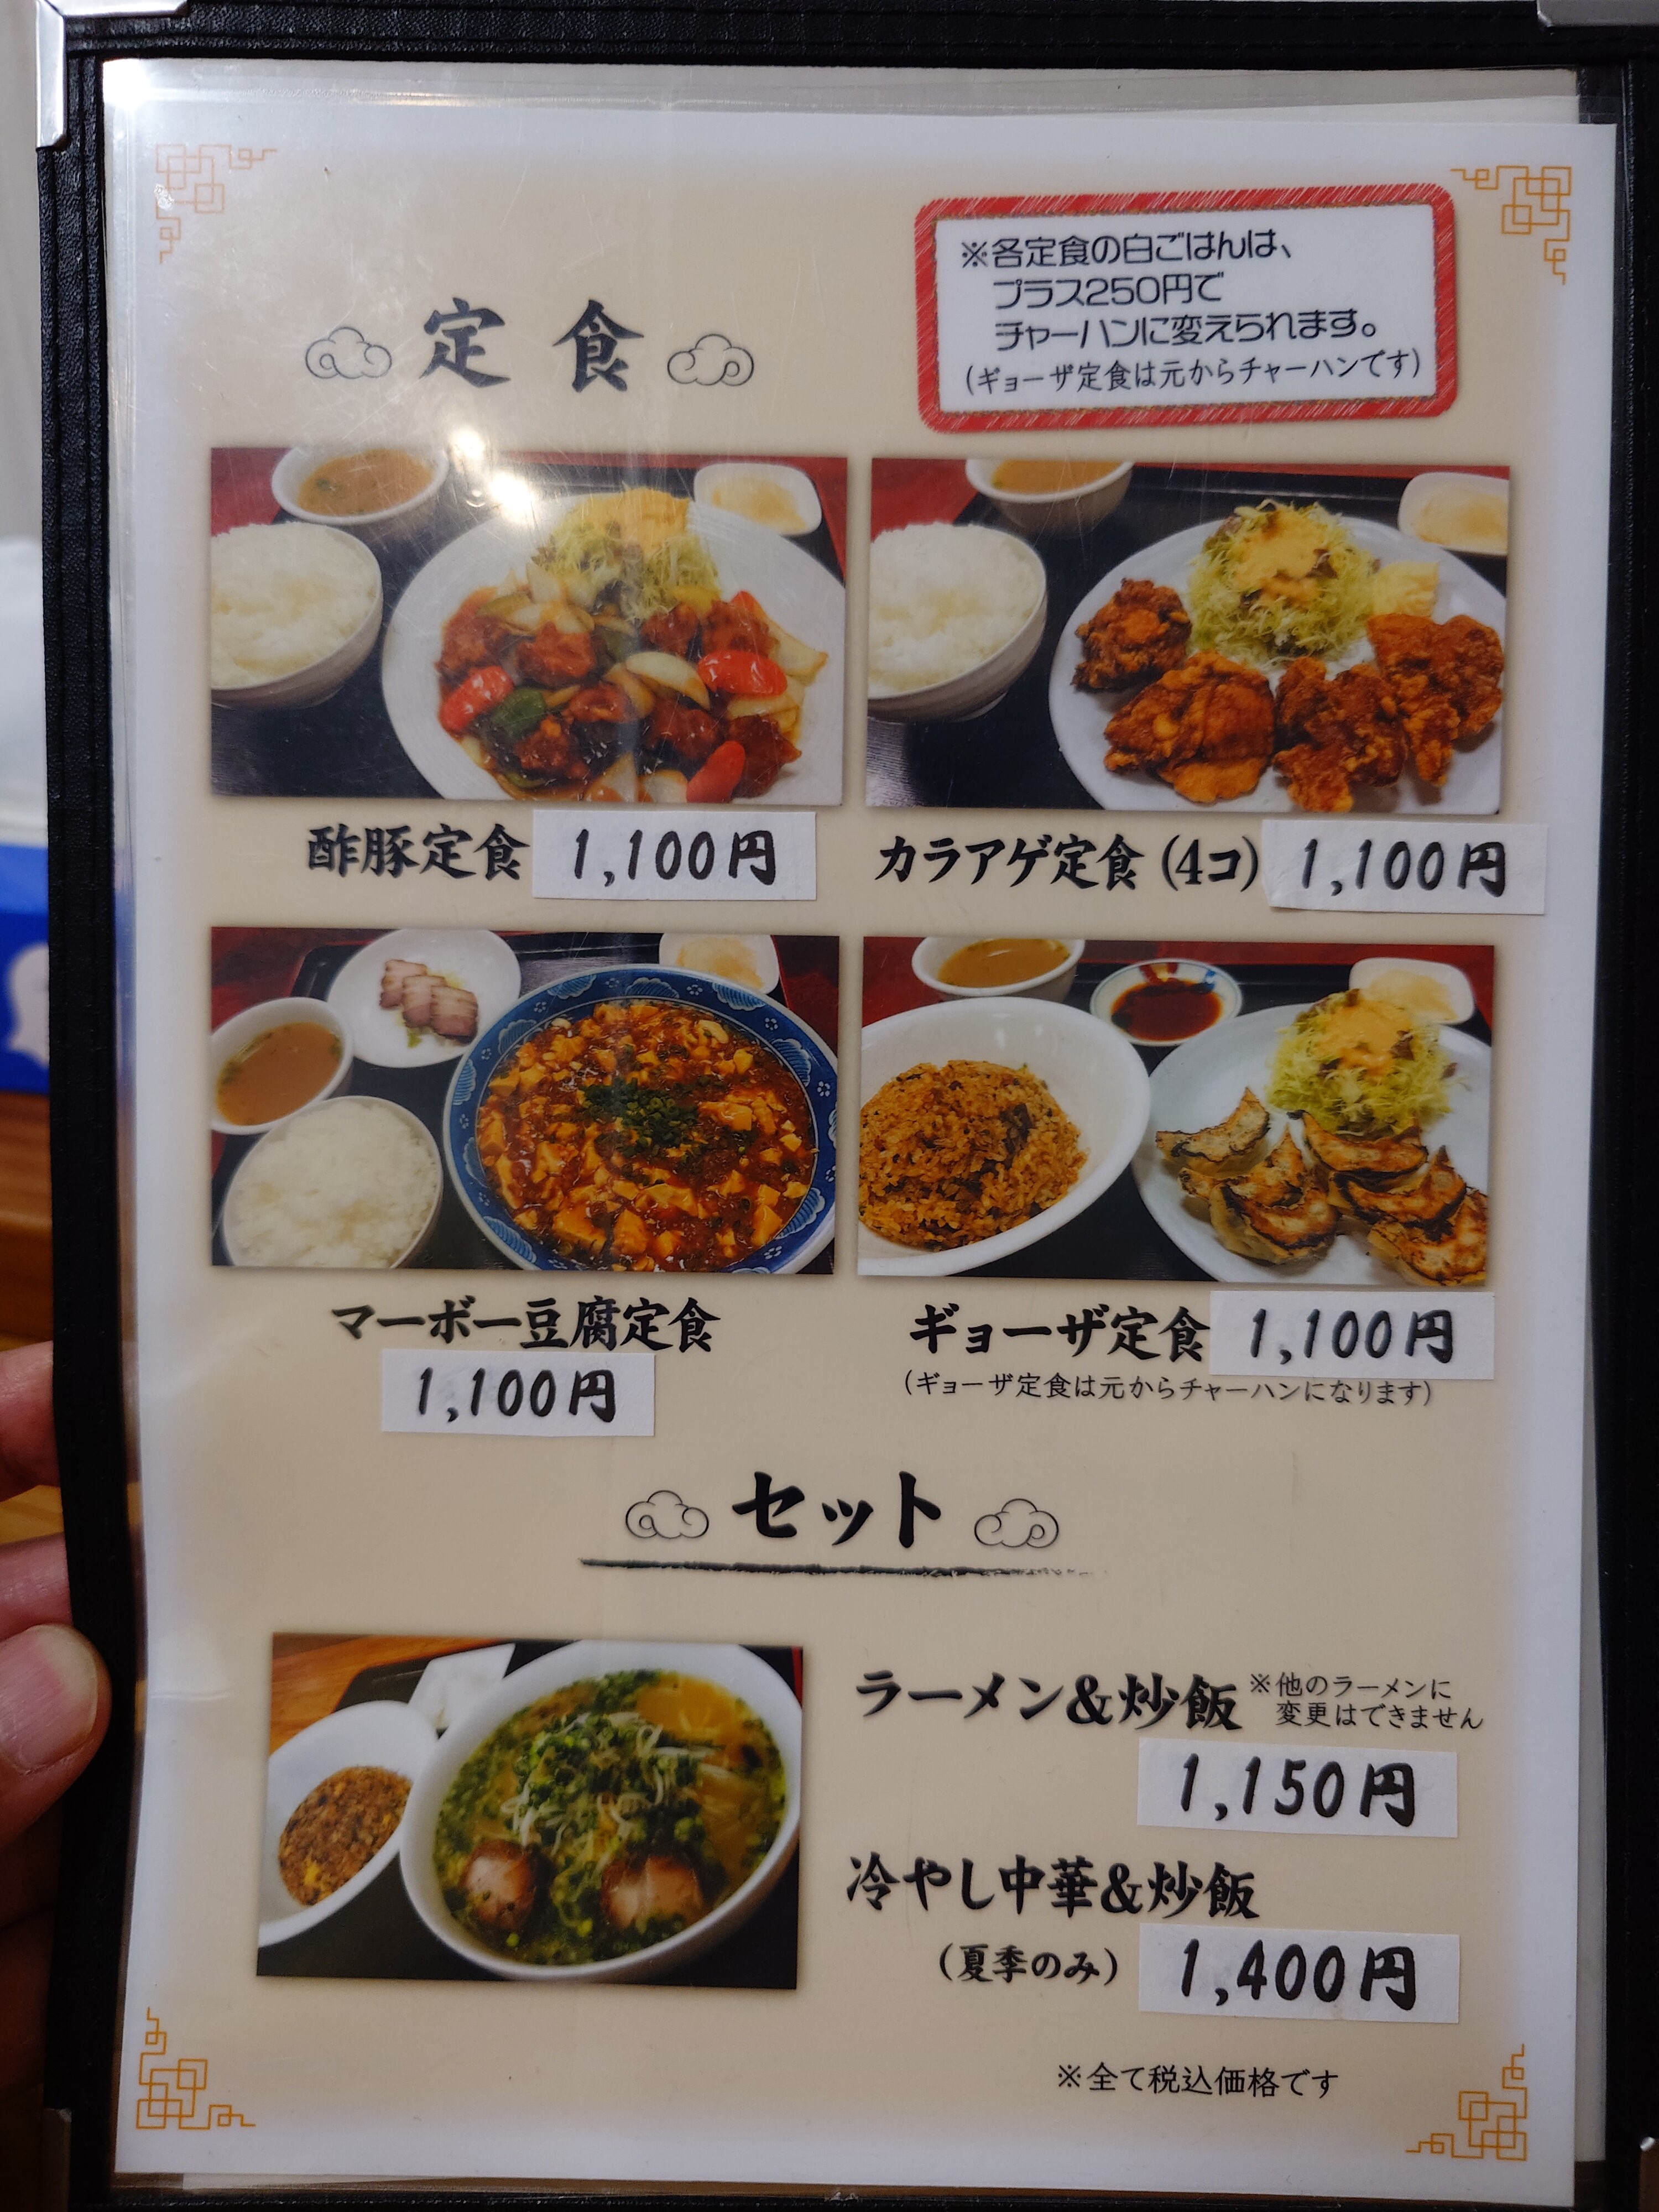 定食
※各定食の白ごはんは、
プラス250円で
チャーハンに変えられます。
(ギョーザ定食は元からチャーハンです)
酢豚定食 1,100円
カラアゲ定食(4コ) 1,100円
マーボー豆腐定食
1,100円
ギョーザ定食 1,100円
(ギョーザ定食は元からチャーハンになります)
セット
ラーメン&炒飯 ※他のラーメンに
変更はできません
1,150円
冷やし中華&炒飯
(夏季のみ) 1,400円
※全て税込価格です